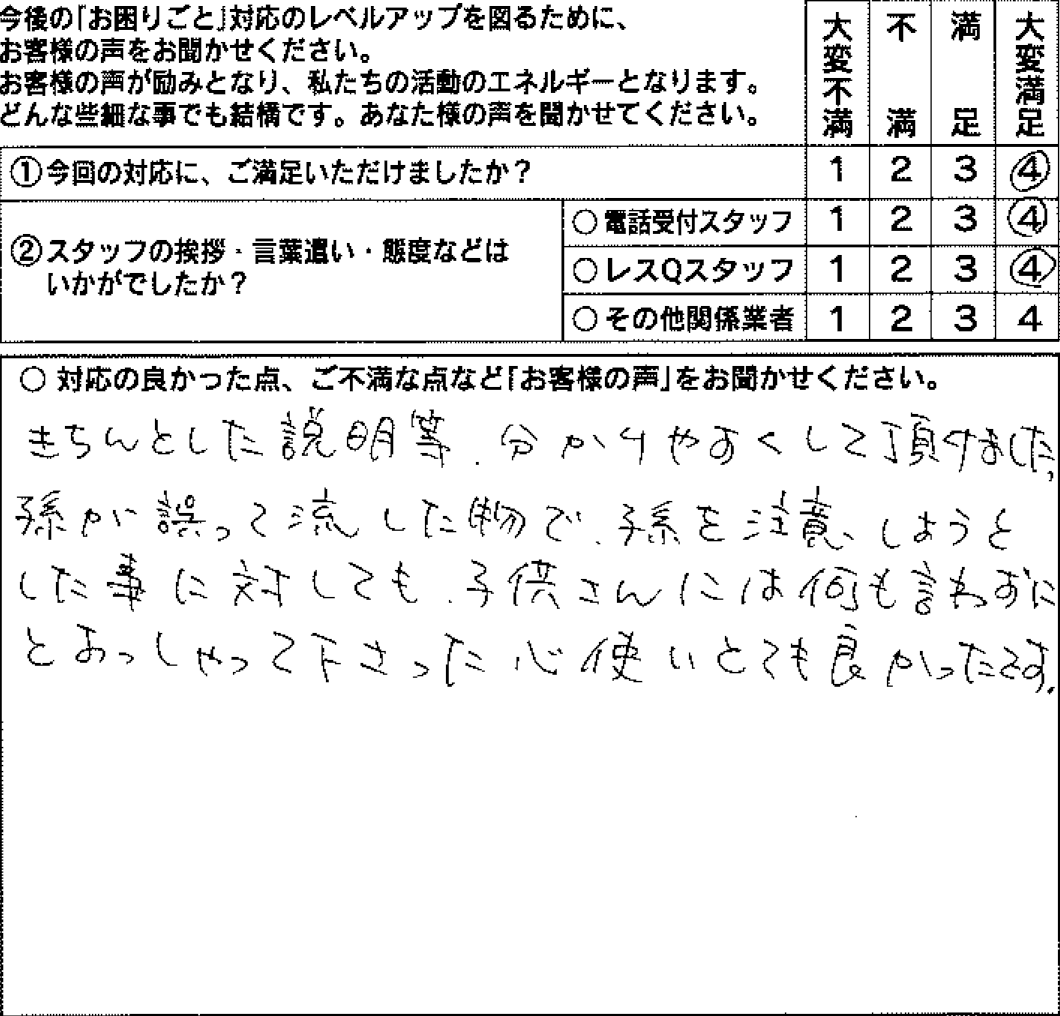 今後の「お困りごと」対応のレベルアップを図るために、
お客様の声をお聞かせください。
お客様の声が励みとなり、私たちの活動のエネルギーとなります。
どんな些細な事でも結構です。あなた様の声を聞かせてください。
大変不満 不満 満足 大変満足
①今回の対応に、ご満足いただけましたか？ 1 2 3 4
②スタッフの挨拶・言葉遣い・態度などは
いかがでしたか？
○電話受付スタッフ 1 2 3 4
○レスQスタッフ 1 2 3 4
○その他関係業者 1 2 3 4
○ 対応の良かった点、ご不満な点など「お客様の声」をお聞かせください。
きちんとした説明等、分かりやすくして頂けました、
孫が誤って流した物で、孫を注意、しようと
した事に対しても、子供さんには何も言わずに
とおっしゃって下さった心使いとても良かったです。